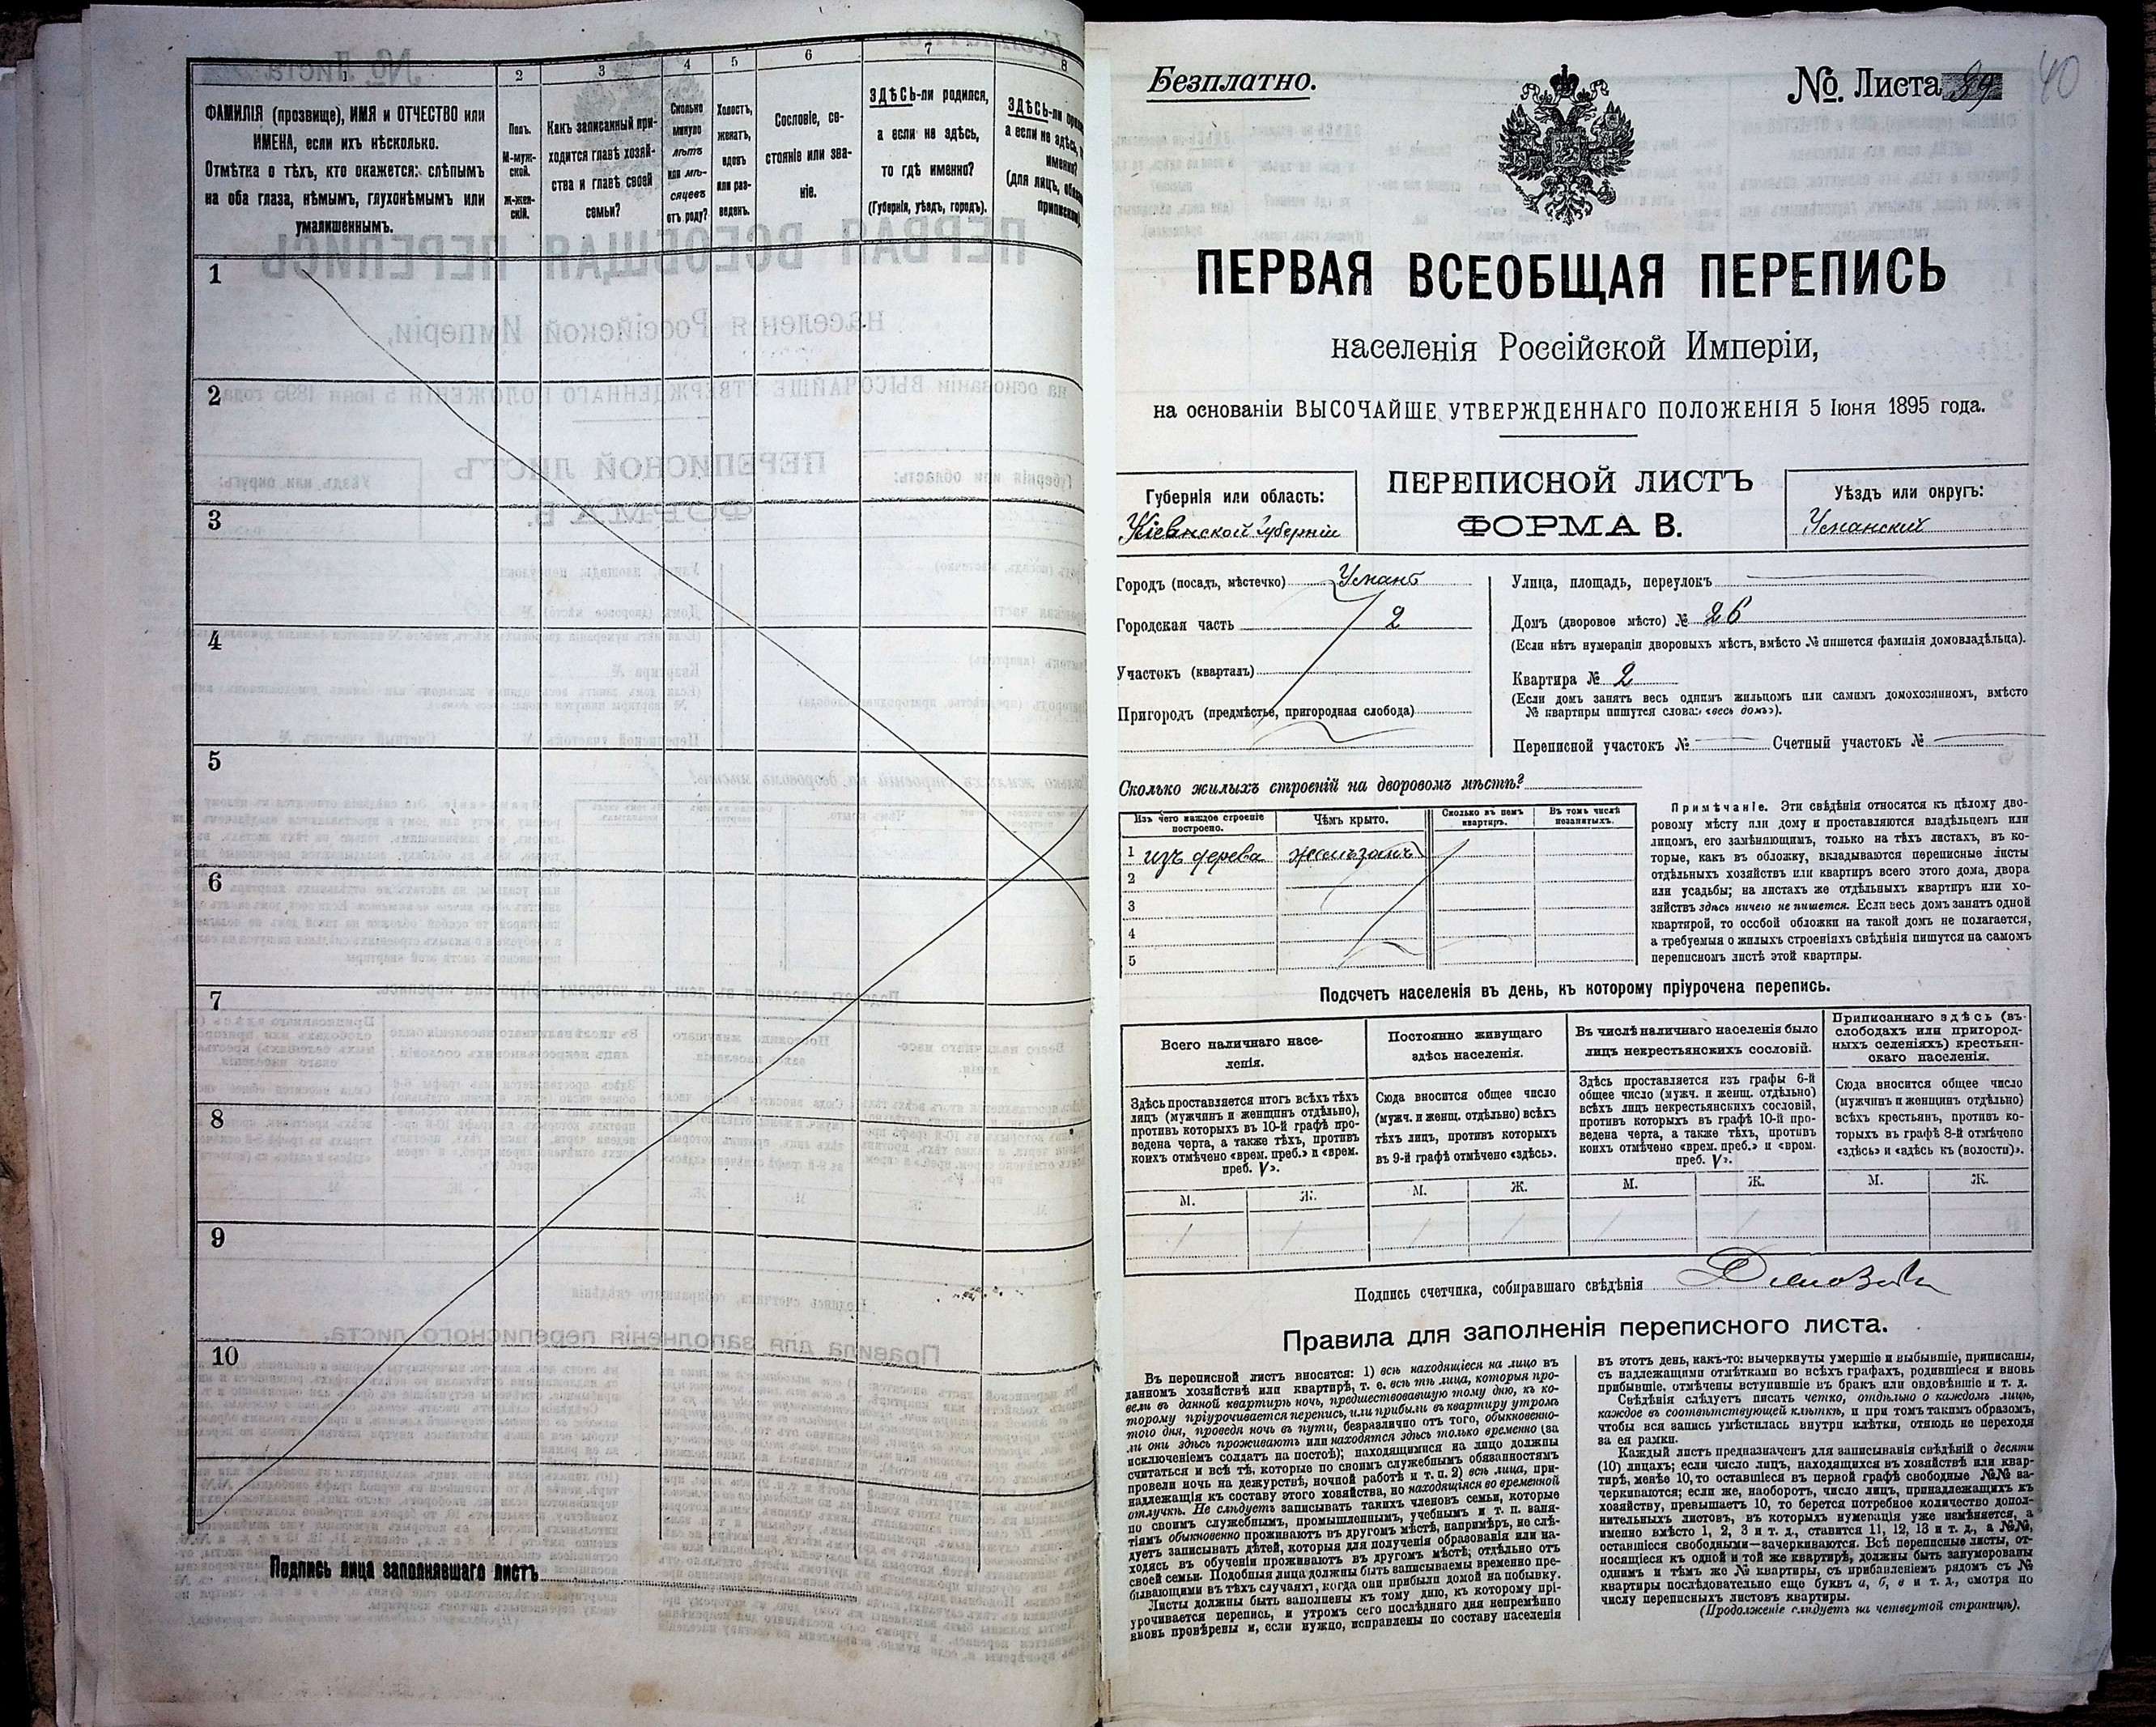 1
2
3
4
5
6
7
8
ФАМИЛІЯ (прозвище), ИМЯ и ОТЧЕСТВО или
ИМЕНА, если ихъ нѣсколько.
Отмѣтка о тѣхъ, кто окажется: слѣпымъ
на оба глаза, нѣмымъ, глухонѣмымъ или
умалишеннымъ.
Полъ.
М-муж-
ской.
ж-жен-
скій.
Какъ записанный при-
ходится главѣ хозяй-
ства и главѣ своей
семьи?
Сколько
минуло
лѣтъ
или мѣ-
сяцевъ
отъ роду?
Холостъ,
женатъ,
вдовъ
или раз-
веденъ.
Сословіе, со-
стояніе или зва-
ніе.
ЗДѢСЬ-ли родился,
а если не здѣсь,
то гдѣ именно?
(Губернія, уѣздъ, городъ).
ЗДѢСЬ-ли
а если не здѣсь,
именно?
(для лицъ,
1
2
3
4
5
6
7
8
9
10
Подпись лица заполнявшаго листъ
Безплатно.
№ Листа 39
40
ПЕРВАЯ ВСЕОБЩАЯ ПЕРЕПИСЬ
населенія Россійской Имперіи,
на основаніи ВЫСОЧАЙШЕ УТВЕРЖДЕННАГО ПОЛОЖЕНІЯ 5 Іюня 1895 года.
Губернія или область:
Кіевской Губерніи
ПЕРЕПИСНОЙ ЛИСТЪ
ФОРМА В.
Уѣздъ или округъ:
Уманскій
Городъ (посадъ, мѣстечко) Умань
Городская часть 2
Участокъ (кварталъ)
Пригородъ (предмѣстье, пригородная слобода)
Улица, площадь, переулокъ
Домъ (дворовое мѣсто) № 26
(Если нѣтъ нумераціи дворовыхъ мѣстъ, вмѣсто № пишется фамилія домовладѣльца).
Квартира № 2
(Если домъ занятъ весь однимъ жильцомъ или самимъ домохозяиномъ, вмѣсто
№ квартиры пишутся слова: «весь домъ»).
Переписной участокъ № Счетный участокъ №
Сколько жилыхъ строеній на дворовомъ мѣстѣ?
Изъ чего каждое строеніе
построено.
Чѣмъ крыто.
Сколько въ немъ
квартиръ.
Въ томъ числѣ
незанятыхъ.
1 изъ дерева желѣзомъ
2
3
4
5
Примѣчаніе. Эти свѣдѣнія относятся къ цѣлому дво-
ровому мѣсту или дому и проставляются владѣльцемъ или
лицомъ, его замѣняющимъ, только на тѣхъ листахъ, въ ко-
торые, какъ въ обложку, вкладываются переписные листы
отдѣльныхъ хозяйствъ или квартиръ всего этого дома, двора
или усадьбы; на листахъ же отдѣльныхъ квартиръ или хо-
зяйствъ здѣсь ничего не пишется. Если весь домъ занятъ одной
квартирой, то особой обложки на такой домъ не полагается,
а требуемыя о жилыхъ строеніяхъ свѣдѣнія пишутся на самомъ
переписномъ листѣ этой квартиры.
Подсчетъ населенія въ день, къ которому пріурочена перепись.
Всего наличнаго насе-
ленія.
Здѣсь проставляется итогъ всѣхъ тѣхъ
лицъ (мужчинъ и женщинъ отдѣльно),
противъ которыхъ въ 10-й графѣ про-
ведена черта, а также тѣхъ, противъ
коихъ отмѣчено «врем. преб.» и «врем.
преб. V».
М. Ж.
Постоянно живущаго
здѣсь населенія.
Сюда вносится общее число
(мужч. и женщ. отдѣльно) всѣхъ
тѣхъ лицъ, противъ которыхъ
въ 9-й графѣ отмѣчено «здѣсь».
М. Ж.
Въ числѣ наличнаго населенія было
лицъ некрестьянскихъ сословій.
Здѣсь проставляется изъ графы 6-й
общее число (мужч. и женщ. отдѣльно)
всѣхъ лицъ некрестьянскихъ сословій,
противъ которыхъ въ графѣ 10-й про-
ведена черта, а также тѣхъ, противъ
коихъ отмѣчено «врем. преб.» и «врем.
преб. V».
М. Ж.
Приписаннаго здѣсь (въ
слободахъ или пригород-
ныхъ селеніяхъ) крестьян-
скаго населенія.
Сюда вносится общее число
(мужчинъ и женщинъ отдѣльно)
всѣхъ крестьянъ, противъ ко-
торыхъ въ графѣ 8-й отмѣчено
«здѣсь» и «здѣсь къ (волости)».
М. Ж.
Подпись счетчика, собиравшаго свѣдѣнія
Правила для заполненія переписного листа.
Въ переписной листъ вносятся: 1) всѣ находящіеся на лицо въ
данномъ хозяйствѣ или квартирѣ, т. е. всѣ тѣ лица, которыя про-
вели въ данной квартирѣ ночь, предшествовавшую тому дню, къ ко-
торому пріурочивается перепись, или прибыли въ квартиру утромъ
того дня, проведя ночь въ пути, безразлично отъ того, обыкновенно-
ли они здѣсь проживаютъ или находятся здѣсь только временно (за
исключеніемъ солдатъ на постоѣ); находящимися на лицо должны
считаться и всѣ тѣ, которые по своимъ служебнымъ обязанностямъ
провели ночь на дежурствѣ, ночной работѣ и т. п. 2) всѣ лица, при-
надлежащія къ составу этого хозяйства, но находящіяся во временной
отлучкѣ. Не слѣдуетъ записывать такихъ членовъ семьи, которые
по своимъ служебнымъ, промышленнымъ, учебнымъ и т. п. заня-
тіямъ обыкновенно проживаютъ въ другомъ мѣстѣ, напримѣръ, не слѣ-
дуетъ записывать дѣтей, которыя для полученія образованія или на-
ходясь въ обученіи проживаютъ въ другомъ мѣстѣ, отдѣльно отъ
своей семьи. Подобныя лица должны быть записываемы временно пре-
бывающими въ тѣхъ случаяхъ, когда они прибыли домой на побывку.
Листы должны быть заполнены къ тому дню, къ которому прі-
урочивается перепись, и утромъ сего послѣдняго дня непремѣнно
вновь провѣрены и, если нужно, исправлены по составу населенія
въ этотъ день, какъ-то: вычеркнуты умершіе и выбывшіе, приписаны,
съ надлежащими отмѣтками во всѣхъ графахъ, родившіеся и вновь
прибывшіе, отмѣчены вступившіе въ бракъ или овдовѣвшіе и т. д.
Свѣдѣнія слѣдуетъ писать четко, отдѣльно о каждомъ лицѣ,
каждое въ соотвѣтствующей клѣткѣ, и при томъ такимъ образомъ,
чтобы вся запись умѣстилась внутри клѣтки, отнюдь не переходя
за ея рамки.
Каждый листъ предназначенъ для записыванія свѣдѣній о десяти
(10) лицахъ; если число лицъ, находящихся въ хозяйствѣ или квар-
тирѣ, менѣе 10, то оставшіеся въ первой графѣ свободные №№ за-
черкиваются; если же, наоборотъ, число лицъ, принадлежащихъ къ
хозяйству, превышаетъ 10, то берется потребное количество допол-
нительныхъ листовъ, въ которыхъ нумерація уже измѣняется, а
именно вмѣсто 1, 2, 3 и т. д., ставится 11, 12, 13 и т. д., а №№,
оставшіеся свободными—зачеркиваются. Всѣ переписные листы, от-
носящіеся къ одной и той же квартирѣ, должны быть занумерованы
однимъ и тѣмъ же № квартиры, съ прибавленіемъ рядомъ съ №
квартиры послѣдовательно еще буквъ а, б, в и т. д., смотря по
числу переписныхъ листовъ квартиры.
(Продолженіе слѣдуетъ на четвертой страницѣ).